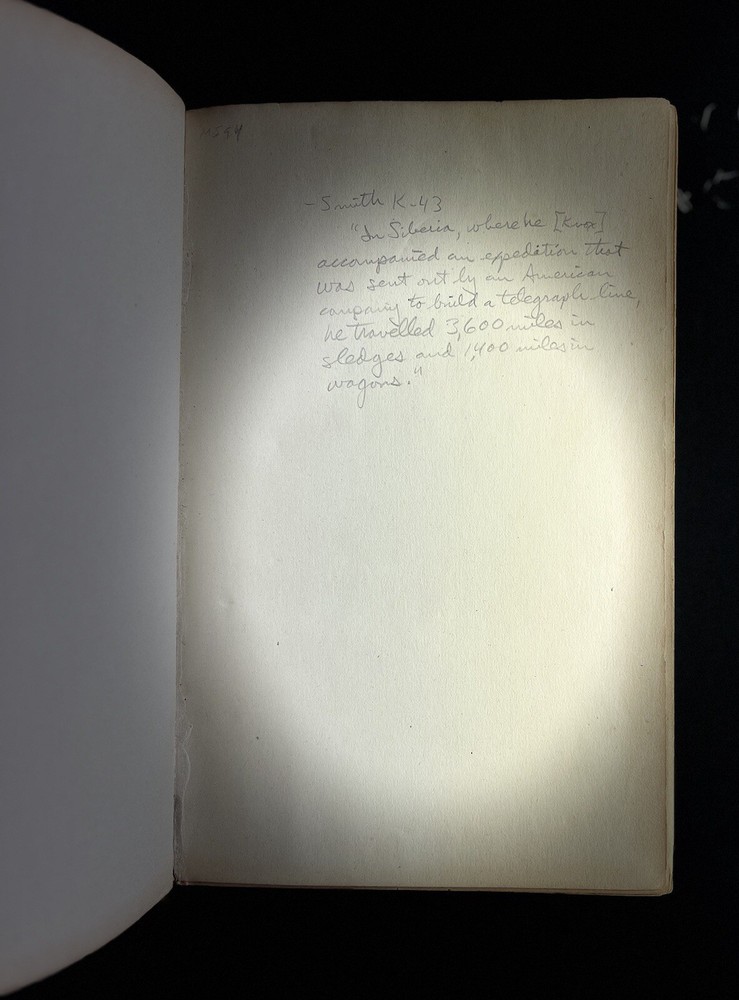 - Smith K-43
"In Siberia, where he [Knox]
accompanied an expedition that
was sent out by an American
company to build a telegraph line,
he travelled 3,600 miles in
sledges and 1,400 miles in
wagons."